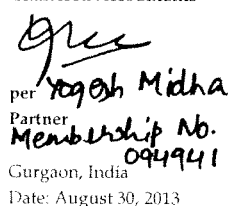 per Yogesh Midha
Partner
Membership No.
094941
Gurgaon, India
Date: August 30, 2013